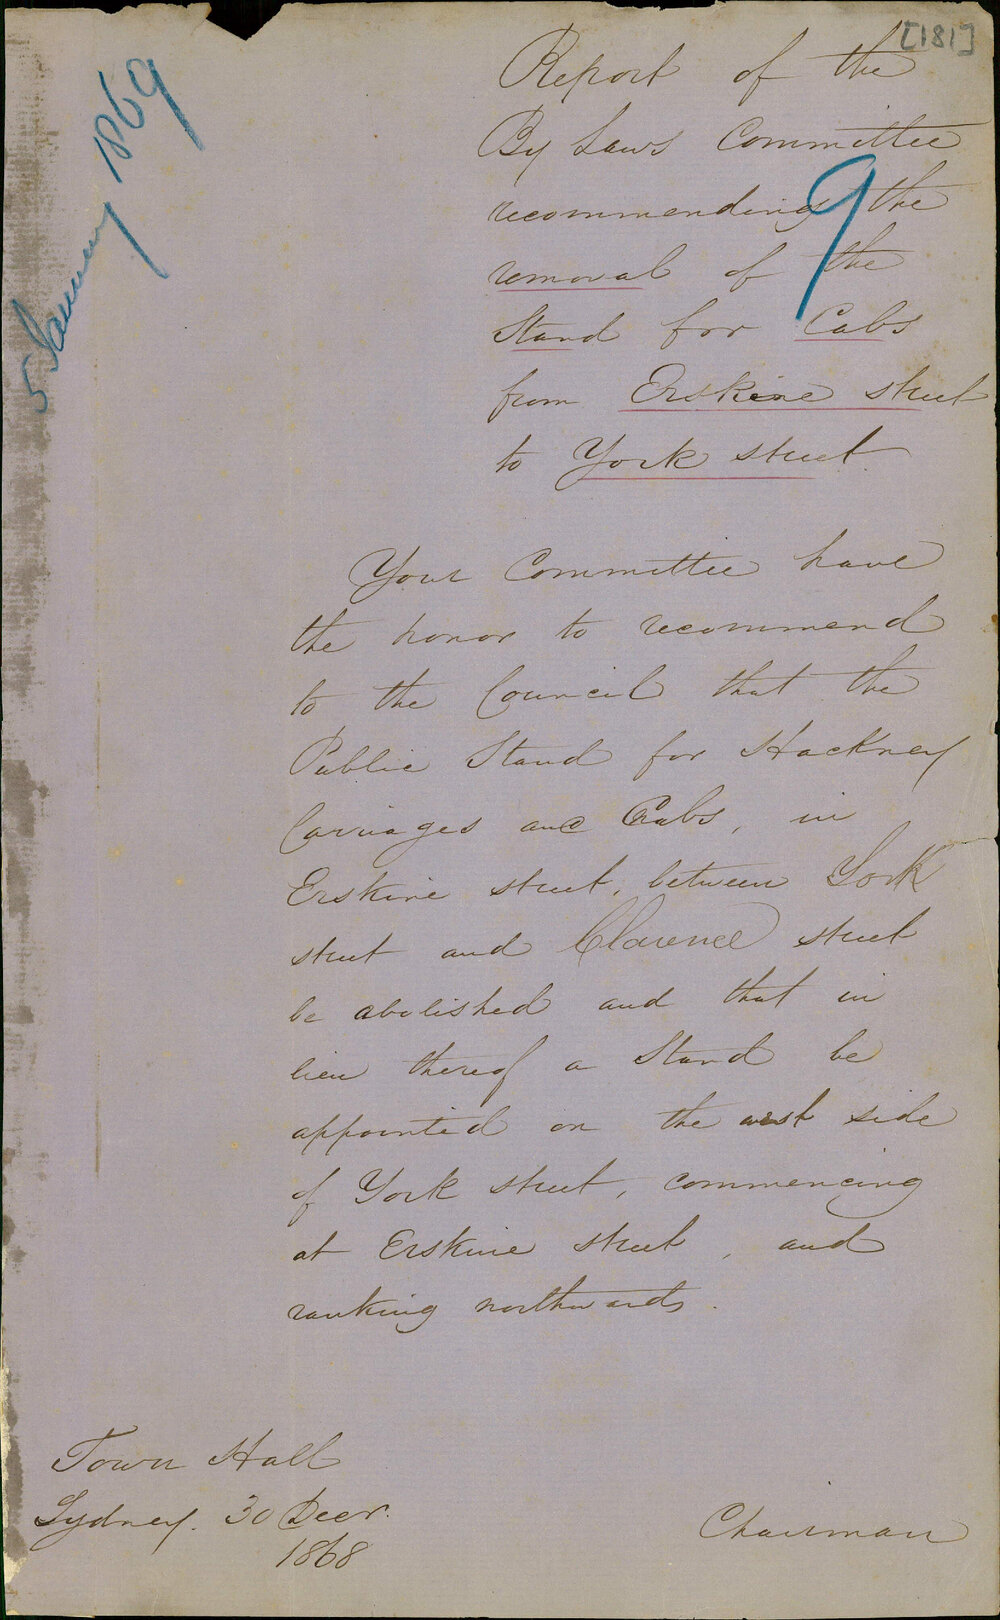 [181]
5 January 1869
9
Report of the
By Laws Committee
recommending the
removal of the
Stand for Cabs
from Erskine street
to York street.
Your Committee have
the honor to recommend
to the Council that the
Public Stand for Hackney
Carriages and Cabs, in
Erskine street, between York
street and Clarence street
be abolished and that in
lieu thereof a Stand be
appointed on the west side
of York street, commencing
at Erskine street, and
ranking northwards.
Town Hall
Sydney. 30 Decr.
1868
Chairman